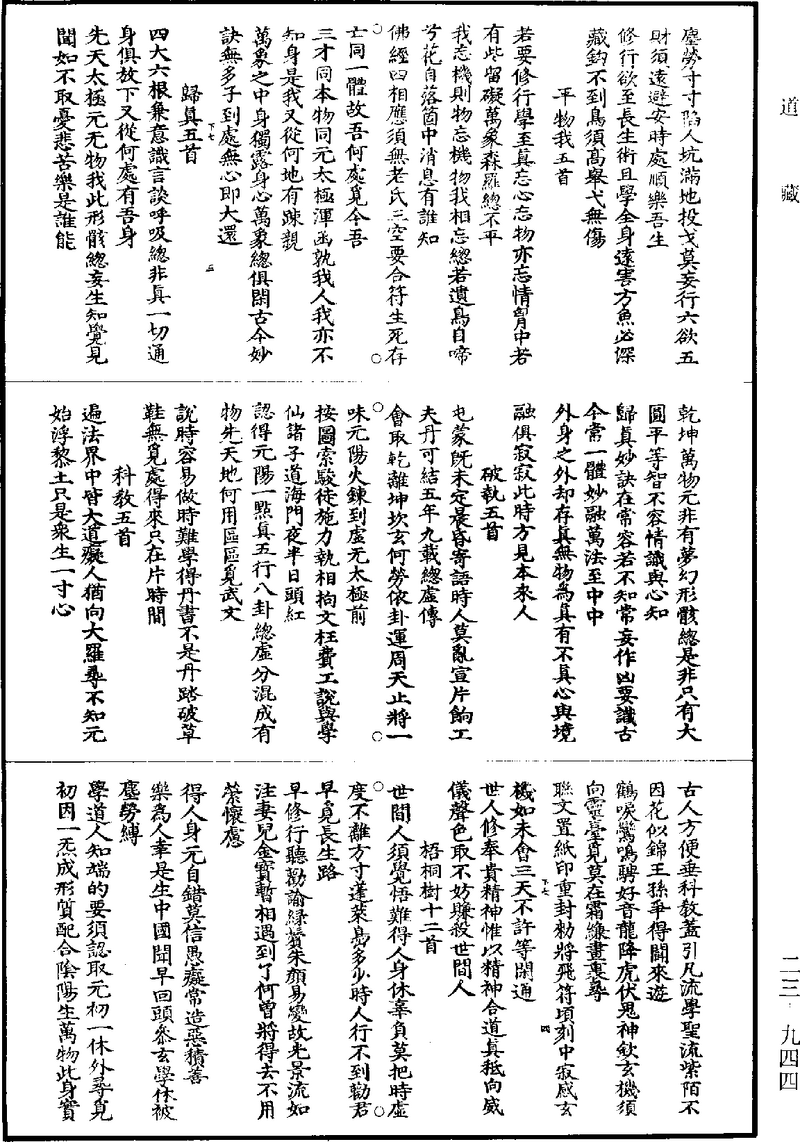 道藏
塵勞寸寸陷人坑滿地投戈莫妄行六欲五
財須遠避安時處順樂吾生
修行欲至長生術且學全身遠害方魚必深
藏鈎不到鳥須高舉弋無傷
平物我五首
若要修行學至真忘心忘物亦忘情胷中若
有些留礙萬象森羅總不平
我忘機則物忘機物我相忘總若遺鳥自啼
兮花自落箇中消息有誰知
佛經四相應須無老氏三空要合符生死存
亡同一體故吾何處覓今吾
三才同本物同元太極渾函孰我人我亦不
知身是我又從何地有踈親
萬象之中身獨露身心萬象總俱閑古今妙
訣無多子到處無心即大還
歸真五首
四大六根兼意識言談呼吸總非真一切通
身俱放下又從何處有吾身
先天太極元无物我此形骸總妄生知覺見
聞如不取憂悲苦樂是誰能
乾坤萬物元非有夢幻形骸總是非只有大
圓平等智不容情識與心知
歸真妙訣在常容若不知常妄作凶要識古
今常一體妙融萬法至中中
外身之外却存真無物為真有不真心與境
融俱寂寂此時方見本來人
破執五首
屯蒙既未定晨昏寄語時人莫亂宣片餉工
夫丹可結五年九載總虛傳
會取乾離坤坎玄何勞依卦運周天止將一
味元陽火鍊到虛无太極前
按圖索駿徒施力執相拘文枉費工說與學
仙諸子道海門夜半日頭紅
認得元陽一點真五行八卦總虛分混成有
物先天地何用區區覓武文
說時容易做時難學得丹書不是丹踏破草
鞋無覓處得來只在片時間
科教五首
遍法界中皆大道癡人猶向大羅尋不知元
始浮黎土只是衆生一寸心
古人方便垂科教蓋引凡流學聖流紫陌不
因花似錦王孫爭得鬪來遊
鶴唳鸞鳴騁好音龍降虎伏鬼神欽玄機須
向靈臺覓莫在霜縑畫裏尋
聯文置紙印重封勑將飛符頃刻中寂感玄
機如未會三天不許等閑通
世人修奉貴精神惟以精神合道真秪向威
儀聲色取不妨賺殺世間人
梧桐樹十二首
世間人須覺悟難得人身休辜負莫把時虛
度不離方寸蓬萊島多少時人行不到勸君
早覓長生路
早修行聽勸諭綠鬢朱顏易變故光景流如
注妻兒金寶暫相遇到了何曾將得去不用
縈懷慮
得人身元自錯莫信愚癡常造惡積善
樂為人幸是生中國聞早回頭叅玄學休被
塵勞縛
學道人知端的要須認取元初一休外尋覓
初因一炁成形質配合陰陽生萬物此身實
二三·九四四